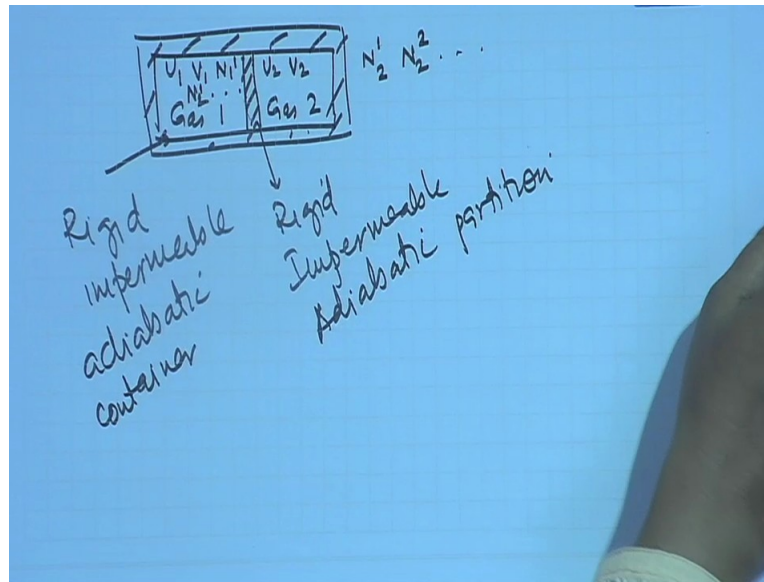 U₁ V₁ N₁¹ U₂ V₂ N₂¹ N₂² . . .
N₁² . . .
Gas 1 Gas 2
Rigid
impermeable
adiabatic
container
Rigid
Impermeable
Adiabatic partition